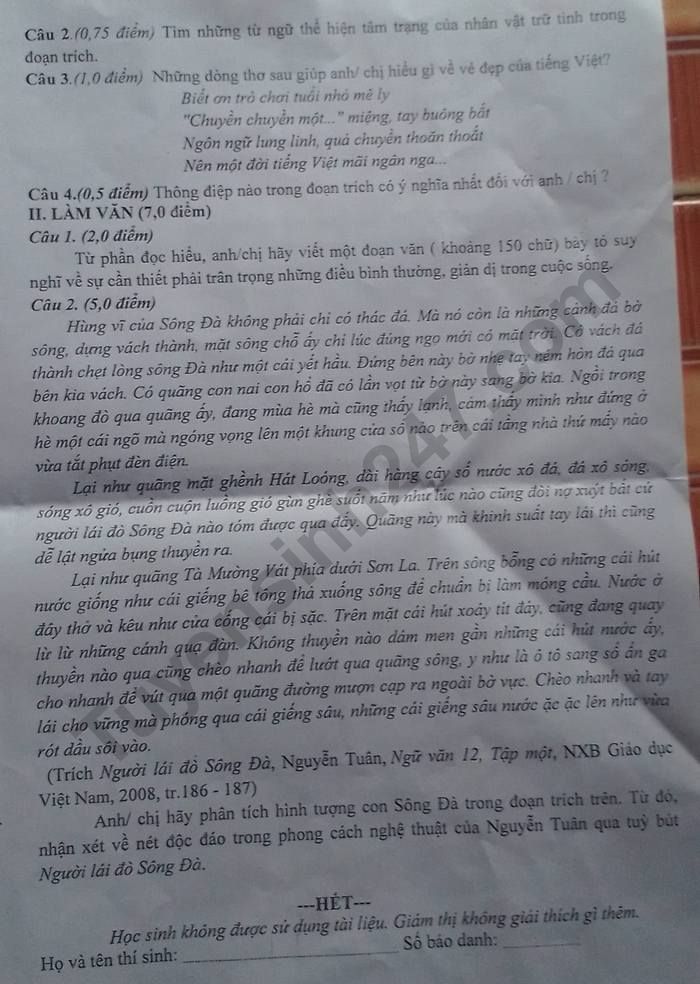 Câu 2.(0,75 điểm) Tìm những từ ngữ thể hiện tâm trạng của nhân vật trữ tình trong
đoạn trích.
Câu 3.(1,0 điểm) Những dòng thơ sau giúp anh/ chị hiểu gì về vẻ đẹp của tiếng Việt?
Biết ơn trò chơi tuổi nhỏ mê ly
"Chuyền chuyền một..." miệng, tay buông bắt
Ngôn ngữ lung linh, quả chuyền thoăn thoắt
Nên một đời tiếng Việt mãi ngân nga...
Câu 4.(0,5 điểm) Thông điệp nào trong đoạn trích có ý nghĩa nhất đối với anh / chị ?
II. LÀM VĂN (7,0 điểm)
Câu 1. (2,0 điểm)
Từ phần đọc hiểu, anh/chị hãy viết một đoạn văn ( khoảng 150 chữ) bày tỏ suy
nghĩ về sự cần thiết phải trân trọng những điều bình thường, giản dị trong cuộc sống.
Câu 2. (5,0 điểm)
Hùng vĩ của Sông Đà không phải chỉ có thác đá. Mà nó còn là những cảnh đá bờ
sông, dựng vách thành, mặt sông chỗ ấy chỉ lúc đúng ngọ mới có mặt trời. Có vách đá
thành chẹt lòng sông Đà như một cái yết hầu. Đứng bên này bờ nhẹ tay ném hòn đá qua
bên kia vách. Có quãng con nai con hổ đã có lần vọt từ bờ này sang bờ kia. Ngồi trong
khoang đò qua quãng ấy, đang mùa hè mà cũng thấy lạnh, cảm thấy mình như đứng ở
hè một cái ngõ mà ngóng vọng lên một khung cửa sổ nào trên cái tầng nhà thứ mấy nào
vừa tắt phụt đèn điện.
Lại như quãng mặt ghềnh Hát Loóng, dài hàng cây số nước xô đá, đá xô sóng,
sóng xô gió, cuồn cuộn luồng gió gùn ghè suốt năm như lúc nào cũng đòi nợ xuýt bất cứ
người lái đò Sông Đà nào tóm được qua đấy. Quãng này mà khinh suất tay lái thì cũng
dễ lật ngửa bụng thuyền ra.
Lại như quãng Tà Mường Vát phía dưới Sơn La. Trên sông bỗng có những cái hút
nước giống như cái giếng bê tông thả xuống sông để chuẩn bị làm móng cầu. Nước ở
đây thở và kêu như cửa cống cái bị sặc. Trên mặt cái hút xoáy tít đáy, cũng đang quay
lừ lừ những cánh quạ đàn. Không thuyền nào dám men gần những cái hút nước ấy,
thuyền nào qua cũng chèo nhanh để lướt qua quãng sông, y như là ô tô sang số ấn ga
cho nhanh để vút qua một quãng đường mượn cạp ra ngoài bờ vực. Chèo nhanh và tay
lái cho vững mà phóng qua cái giếng sâu, những cái giếng sâu nước ặc ặc lên như vừa
rót dầu sôi vào.
(Trích Người lái đò Sông Đà, Nguyễn Tuân, Ngữ văn 12, Tập một, NXB Giáo dục
Việt Nam, 2008, tr.186 - 187)
Anh/ chị hãy phân tích hình tượng con Sông Đà trong đoạn trích trên. Từ đó,
nhận xét về nét độc đáo trong phong cách nghệ thuật của Nguyễn Tuân qua tuỳ bút
Người lái đò Sông Đà.
---HẾT---
Học sinh không được sử dụng tài liệu. Giám thị không giải thích gì thêm.
Họ và tên thí sinh: ____________________ Số báo danh: ________
tuyensinh247.com